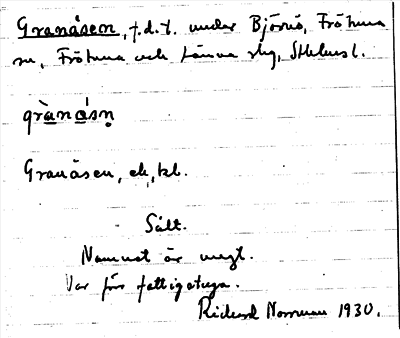 Granåsen, f.d.t. under Björnö, Frötuna
sn, Frötuna och Länna slg, Sthlmsl.
gràná̀sn̥
Granåsen, ek, kl.
Sålt.
Namnet är ungt.
Var förr fattigstuga.
Rickard Norrman 1930.